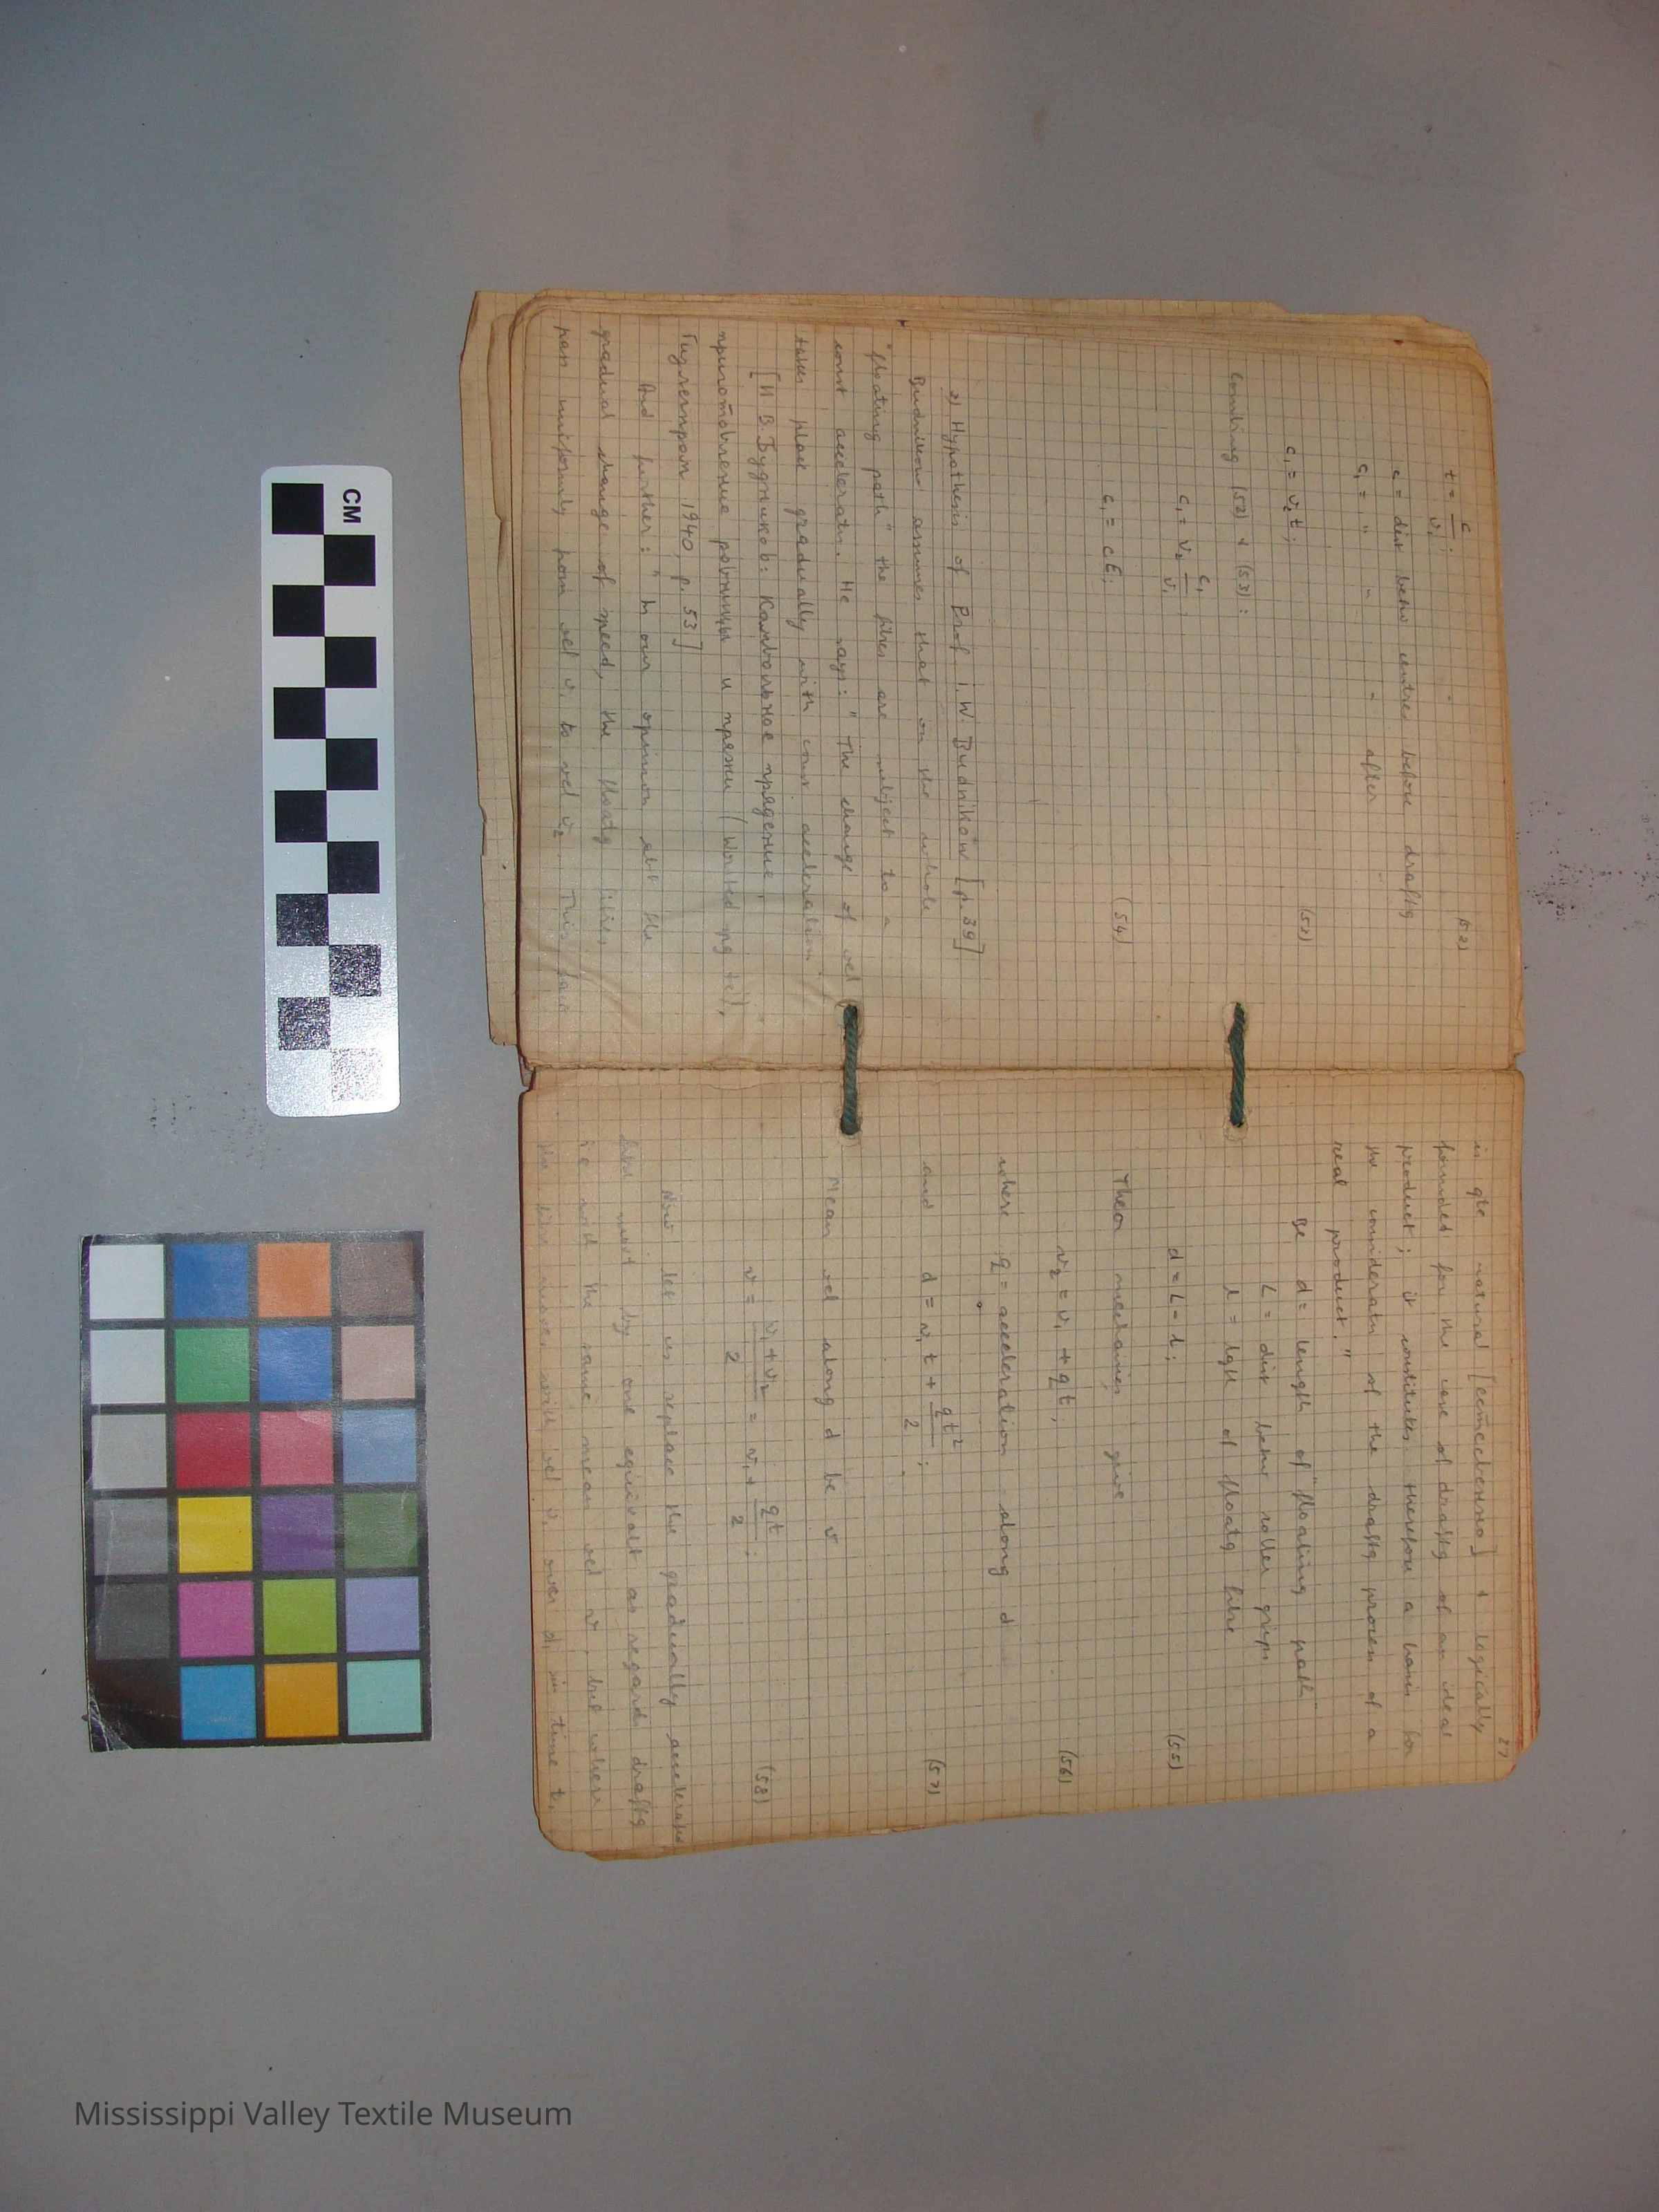 t = c/v₁ ; (52)
c = dist betw centres before draftg
c₁ = " - - - after
c₁ = v₂t ; (52)
Combing (52) & (53) :
c₁ = v₂ c/v₁ ;
c₁ = cE ; (54)
2) Hypothesis of Prof. I. W. Budnikow [p. 39]
Budnikow assumes that on the whole
"floating path" the fibres are subject to a
const acceleratn. He says: "The change of vel
takes place gradually with const acceleration"
[И В. Будников: Камвольное прядение,
приготовление ровницы и пряжи (Worsted spg &c),
Гизлегпром 1940, p. 53]
And further: "In our opinion the
gradual change of speed, the floatg fibres
pass uniformly from vel v₁ to vel v₂. This law
27
is qte natural [естественно] & logically
founded for the case of draftg of an ideal
product; it constitutes therefore a basis for
the consideratn of the draftg process of a
real product."
Be d = length of "floating path"
L = dist betw roller grips
l = lgth of floatg fibre
d = L - l ; (55)
Then mechanics give
v₂ = v₁ + qt ; (56)
where q = acceleration along d
and d = v₁t + qt²/2 ; (57)
Mean vel along d be v
v = v₁+v₂/2 = v₁ + qt/2 ; (58)
Now let us replace the gradually acceleratd
fibre movt by one equivalt as regards draftg
ie with the same mean vel v, but where
the fibre moves with vel v₁ over d₁ in time t₁